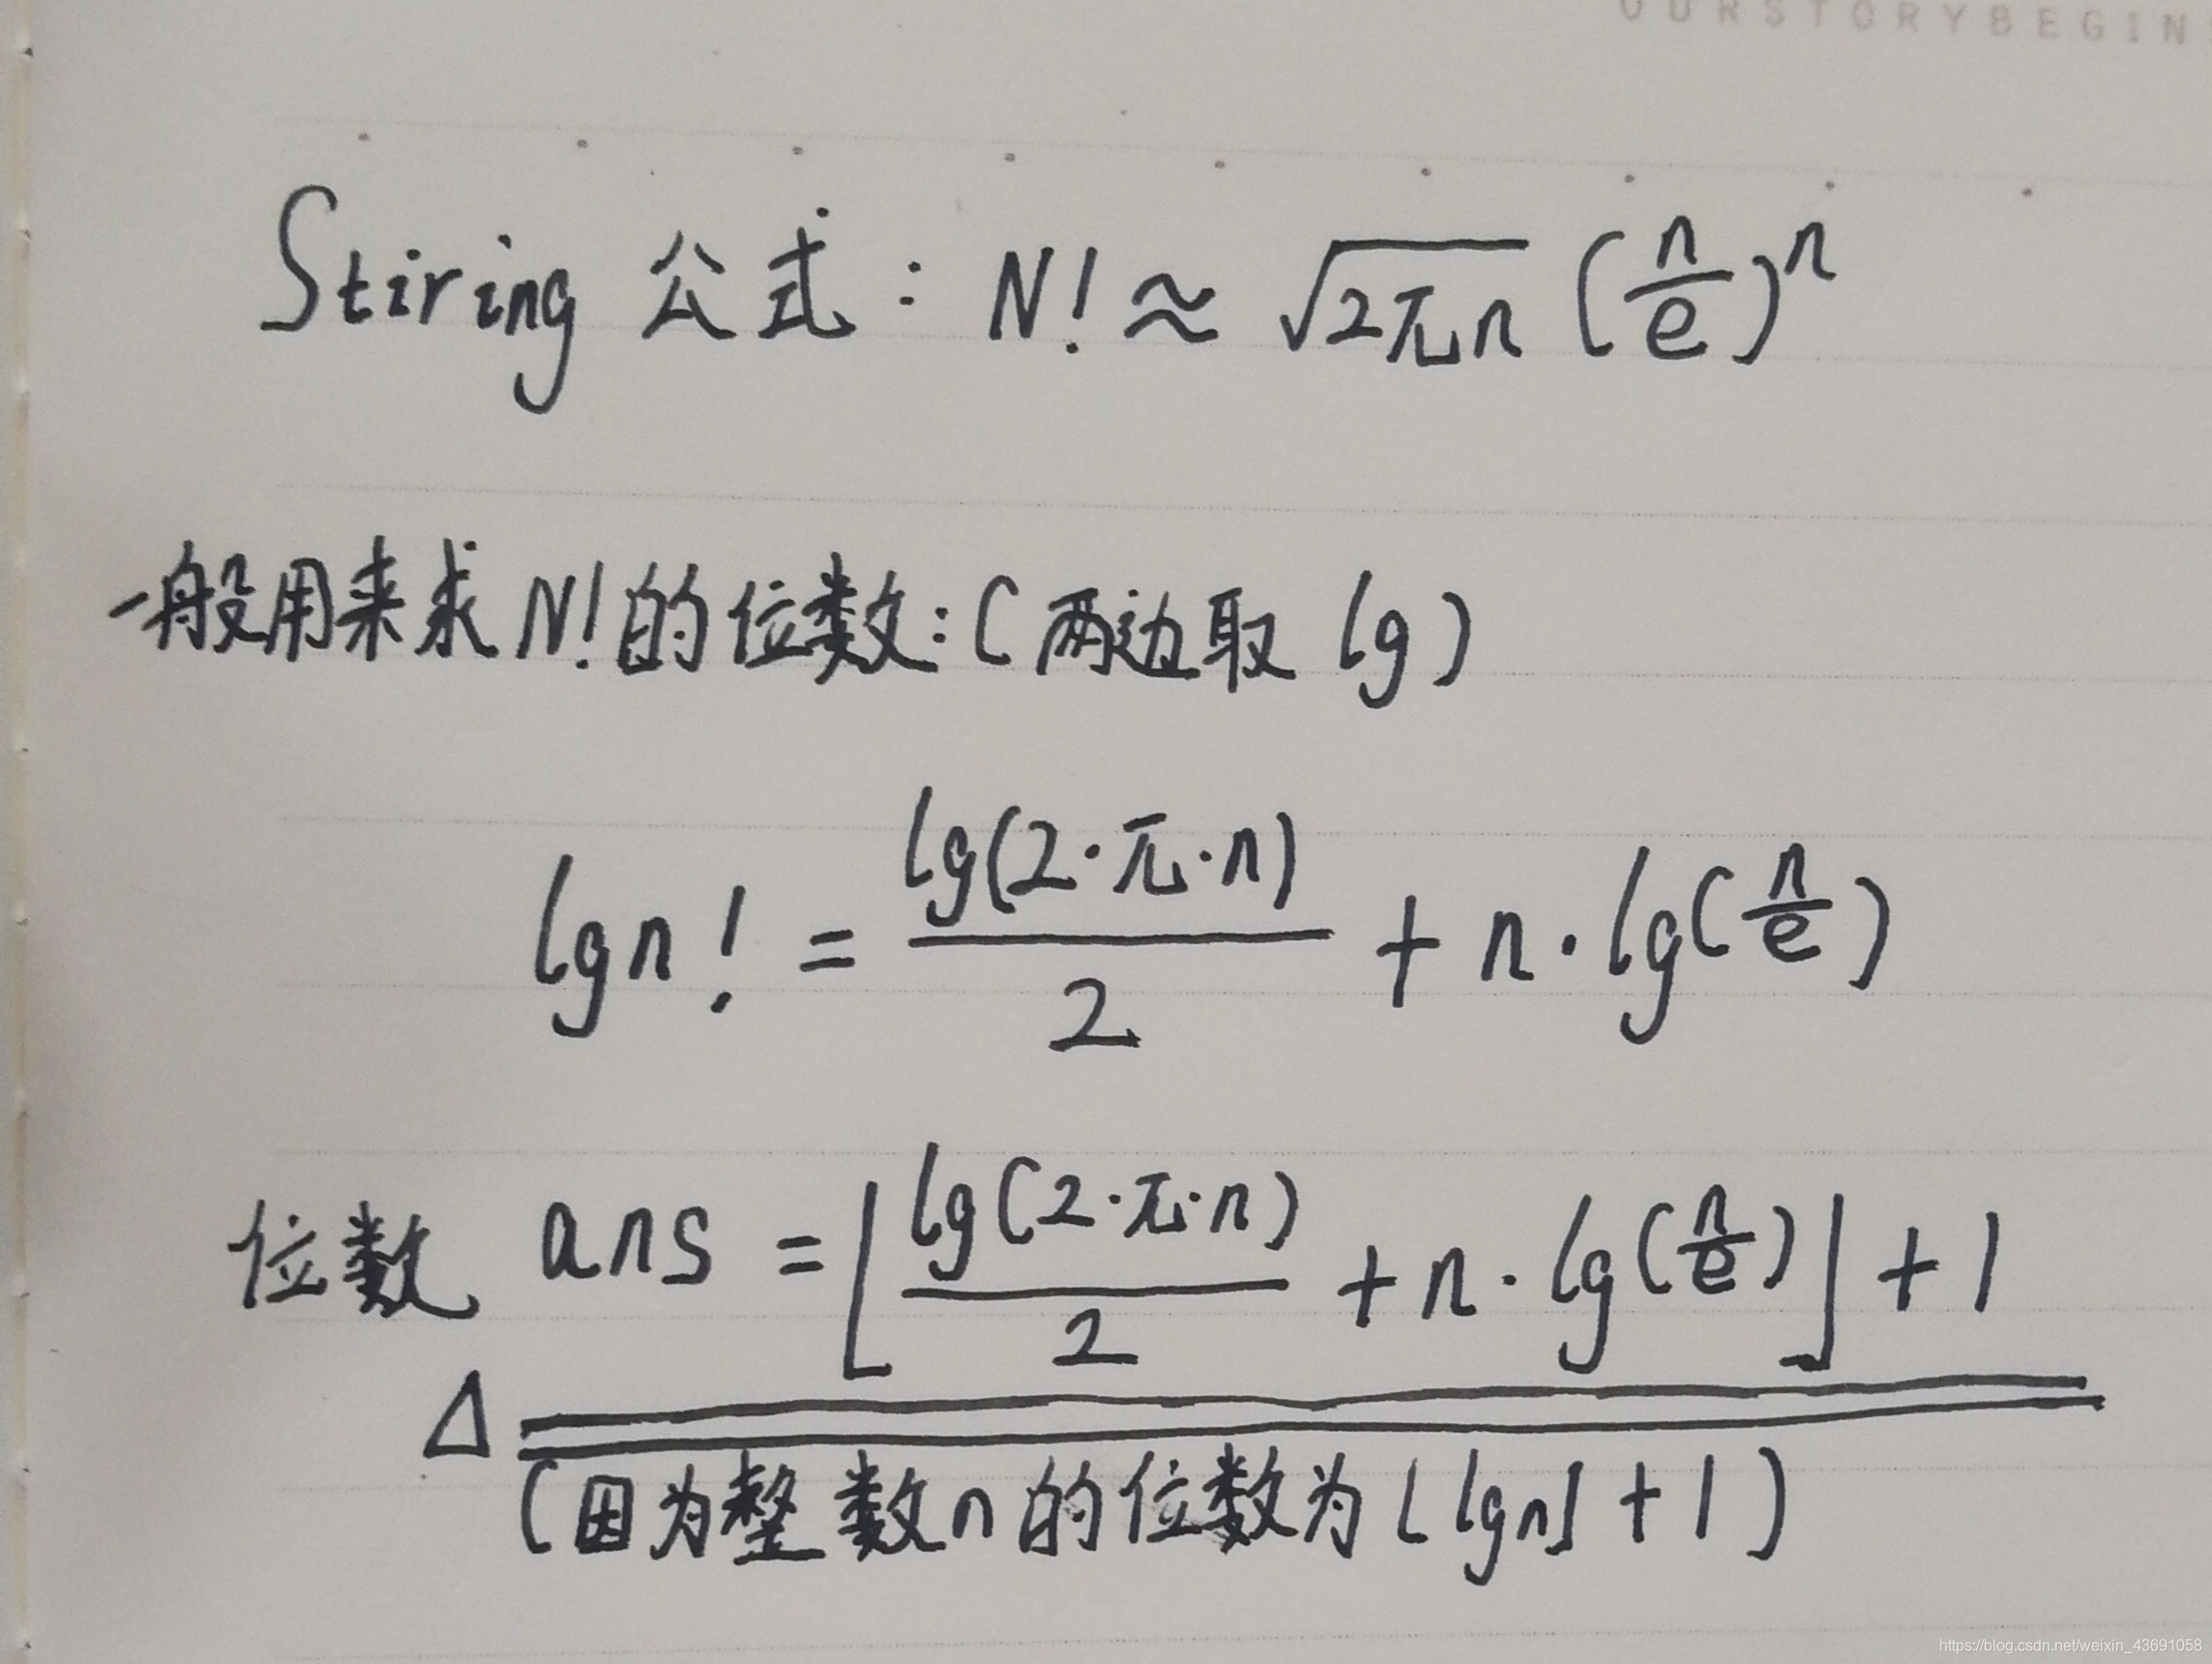 OURSTORYBEGIN
Stiring 公式：N! ≈ √(2πn) (n/e)^n
一般用来求N!的位数：(两边取 lg)
lgn! = lg(2·π·n)/2 + n·lg(n/e)
位数 ans = ⌊lg(2·π·n)/2 + n·lg(n/e)⌋ + 1
Δ
(因为整数n的位数为⌊lgn⌋+1)
https://blog.csdn.net/weixin_43691058